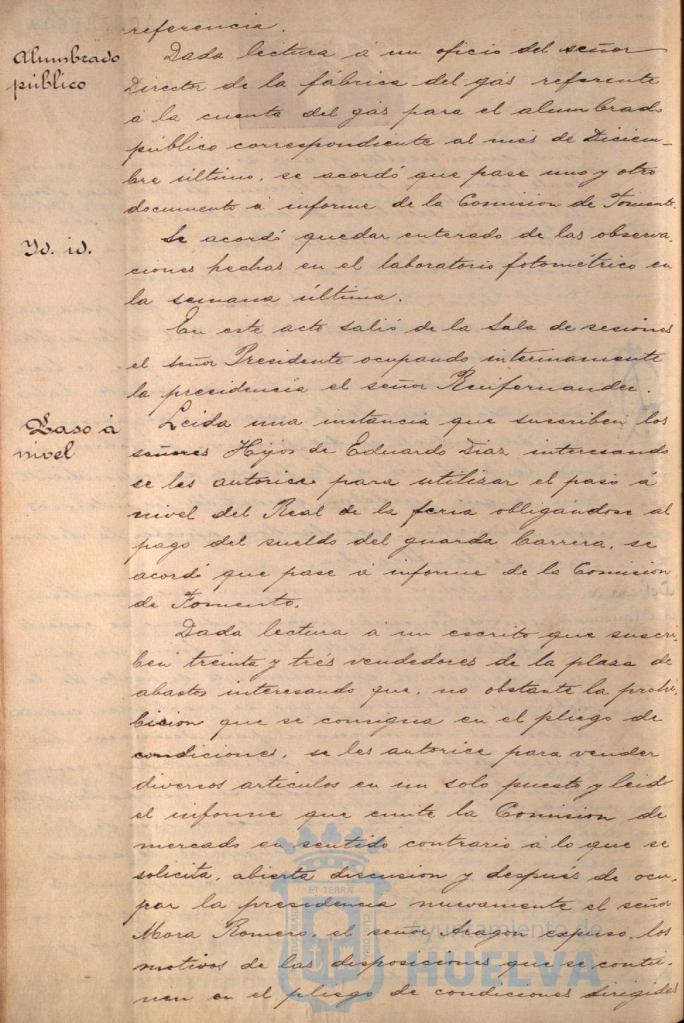 referencia.
Alumbrado
público
Dada lectura á un oficio del señor
Director de la fábrica del gas referente
á la cuenta del gas para el alumbrado
público correspondiente al mes de Diciem-
bre último, se acordó que pase uno y otro
documento á informe de la Comision de Fomento.
Yd. id.
Se acordó quedar enterado de las observa-
ciones hechas en el laboratorio fotométrico en
la semana última.
En este acto salió de la Sala de sesiones
el señor Presidente ocupando interinamente
la presidencia el señor Ruifernandez.
Paso á
nivel
Leida una instancia que suscriben los
señores Hijos de Eduardo Diaz interesando
se les autorice para utilizar el paso á
nivel del Real de la feria obligándose al
pago del sueldo del guarda barrera, se
acordó que pase á informe de la Comision
de Fomento.
Dada lectura á un escrito que suscri-
ben treinta y tres vendedores de la plaza de
abastos interesando que, no obstante la prohi-
bicion que se consigna en el pliego de
condiciones, se les autorice para vender
diversos articulos en un solo puesto y leido
el informe que emite la Comision de
mercado en sentido contrario á lo que se
solicita, abierta discusion y después de ocu-
par la presidencia nuevamente el señor
Mora Romero, el señor Aragon expuso los
motivos de las disposiciones que se contie-
nen en el pliego de condiciones dirigidas
ET TERRA
Ayuntamiento de
HUELVA